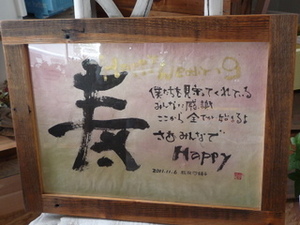 Happy Wedding
寿
僕たちを見守ってくれている
みんなに感謝
ここから全てが始まるよ
さあみんなで
Happy